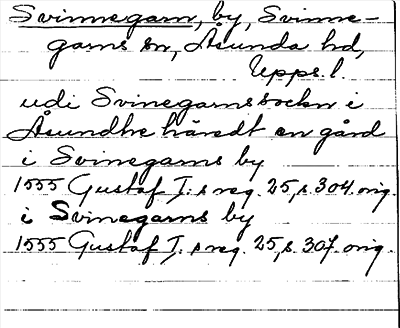 Svinnegarn, by, Svinne-
garns sn, Åsunda hd,
Upps. l.
udi Svinegarnssockn i
Åsundhe häredt en gård
i Svinegarns by
1555 Gustaf I:s reg. 25, s. 304. orig.
i Svinegarns by
1555 Gustaf I:s reg. 25, s. 307. orig.